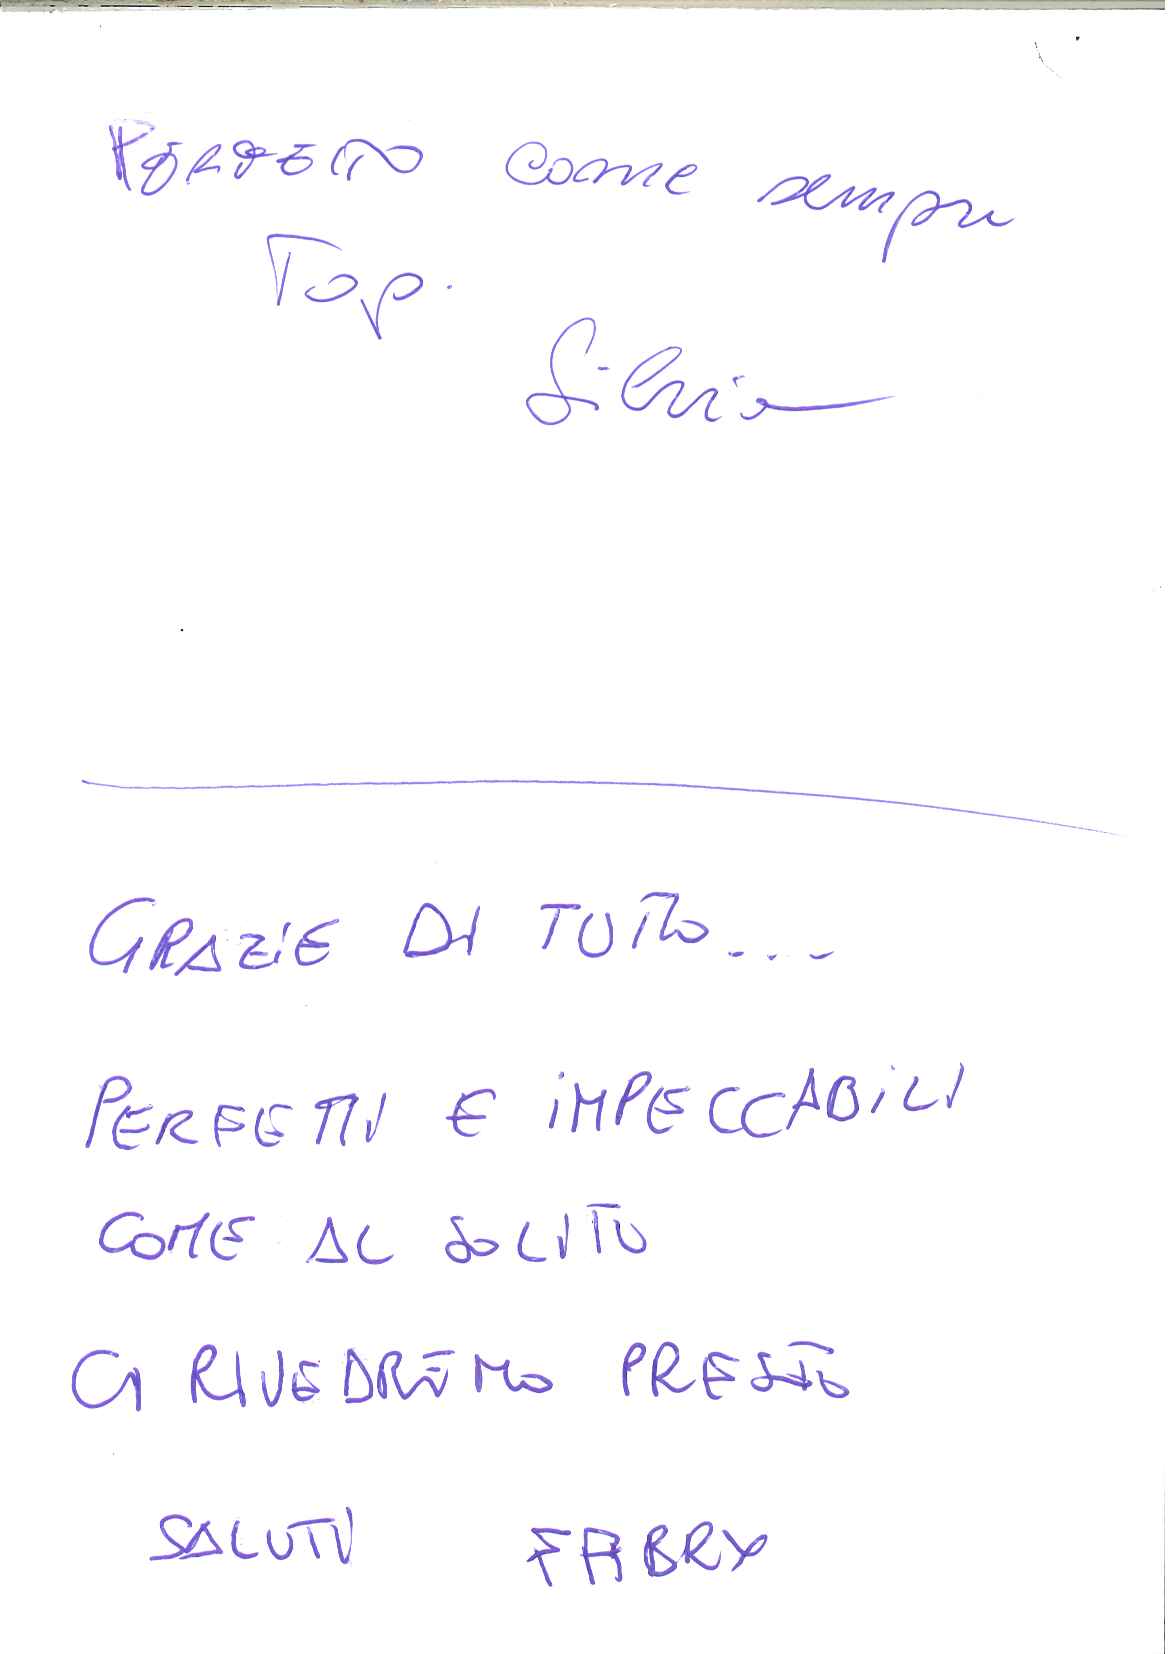 PERFETTO come sempre
Top.
Silvia
GRAZIE DI TUTTO....
PERFETTI E IMPECCABILI
COME AL SOLITO
CI RIVEDREMO PRESTO
SALUTI FABRY